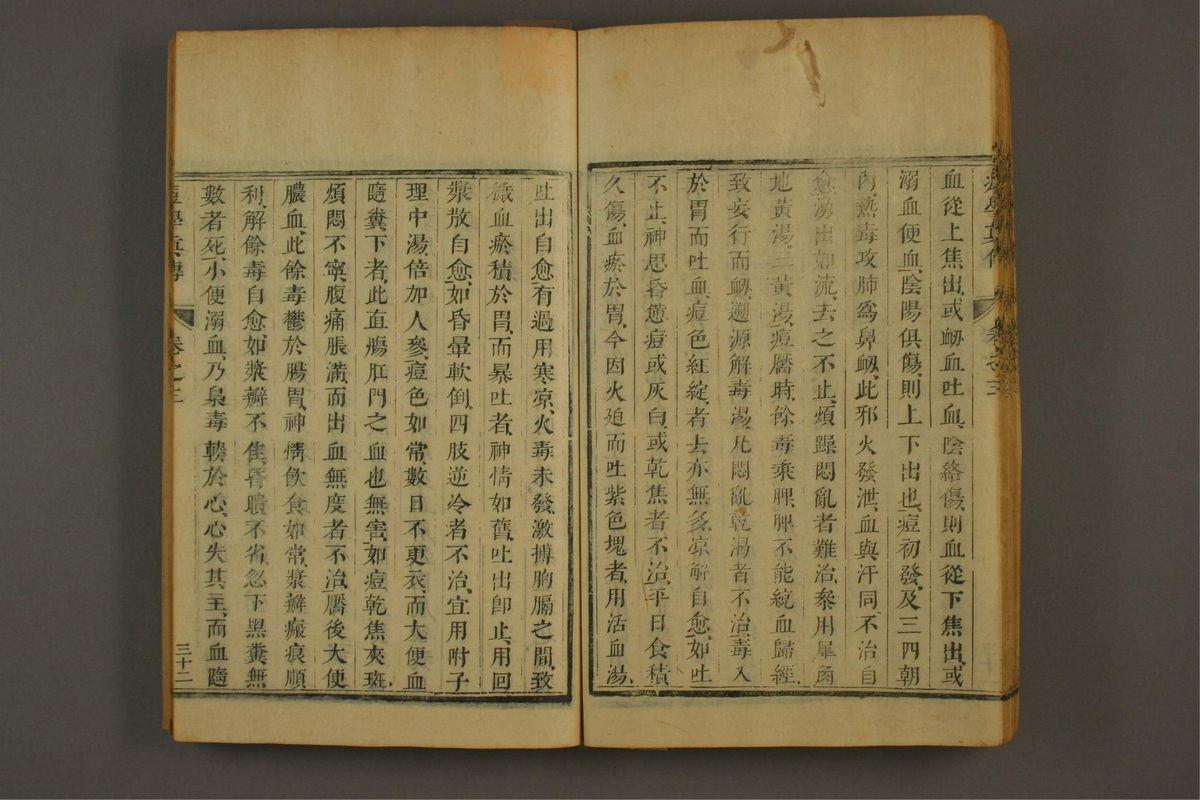 血從上焦出或衂血吐血陰絡傷則血從下焦出或
溺血便血陰陽俱傷則上下出也痘初發及三四朝
內熱毒攻肺爲鼻衂此邪火發泄血與汗同不治自
愈湧出如流去之不止煩躁悶亂者難治叅用犀角
地黃湯三黃湯痘靨時餘毒乘脾脾不能統血歸經
致妄行而衂遡源解毒湯凡悶亂乾渴者不治毒入
於胃而吐血痘色紅綻者去亦無多凉解自愈如吐
不止神思昏憊痘或灰白或乾焦者不治平日食積
久傷血瘀於胃今因火迫而吐紫色塊者用活血湯
吐出自愈有過用寒凉火毒未發激搏胸膈之間致
微血瘀積於胃而暴吐者神情如舊吐出卽止用回
漿散自愈如昏暈軟倒四肢逆冷者不治宜用附子
理中湯倍加人參痘色如常數日不更衣而大便血
隨糞下者此直腸肛門之血也無害如痘乾焦夾斑
煩悶不寧腹痛脹滿而出血無度者不治靨後大便
膿血此餘毒鬱於腸胃神情飲食如常漿瓣瘢痕順
利解餘毒自愈如漿瓣不焦昏聵不省忽下黑糞無
數者死小便溺血乃梟毒轃於心心失其主而血隨
痘學眞傳 卷之三 三十二